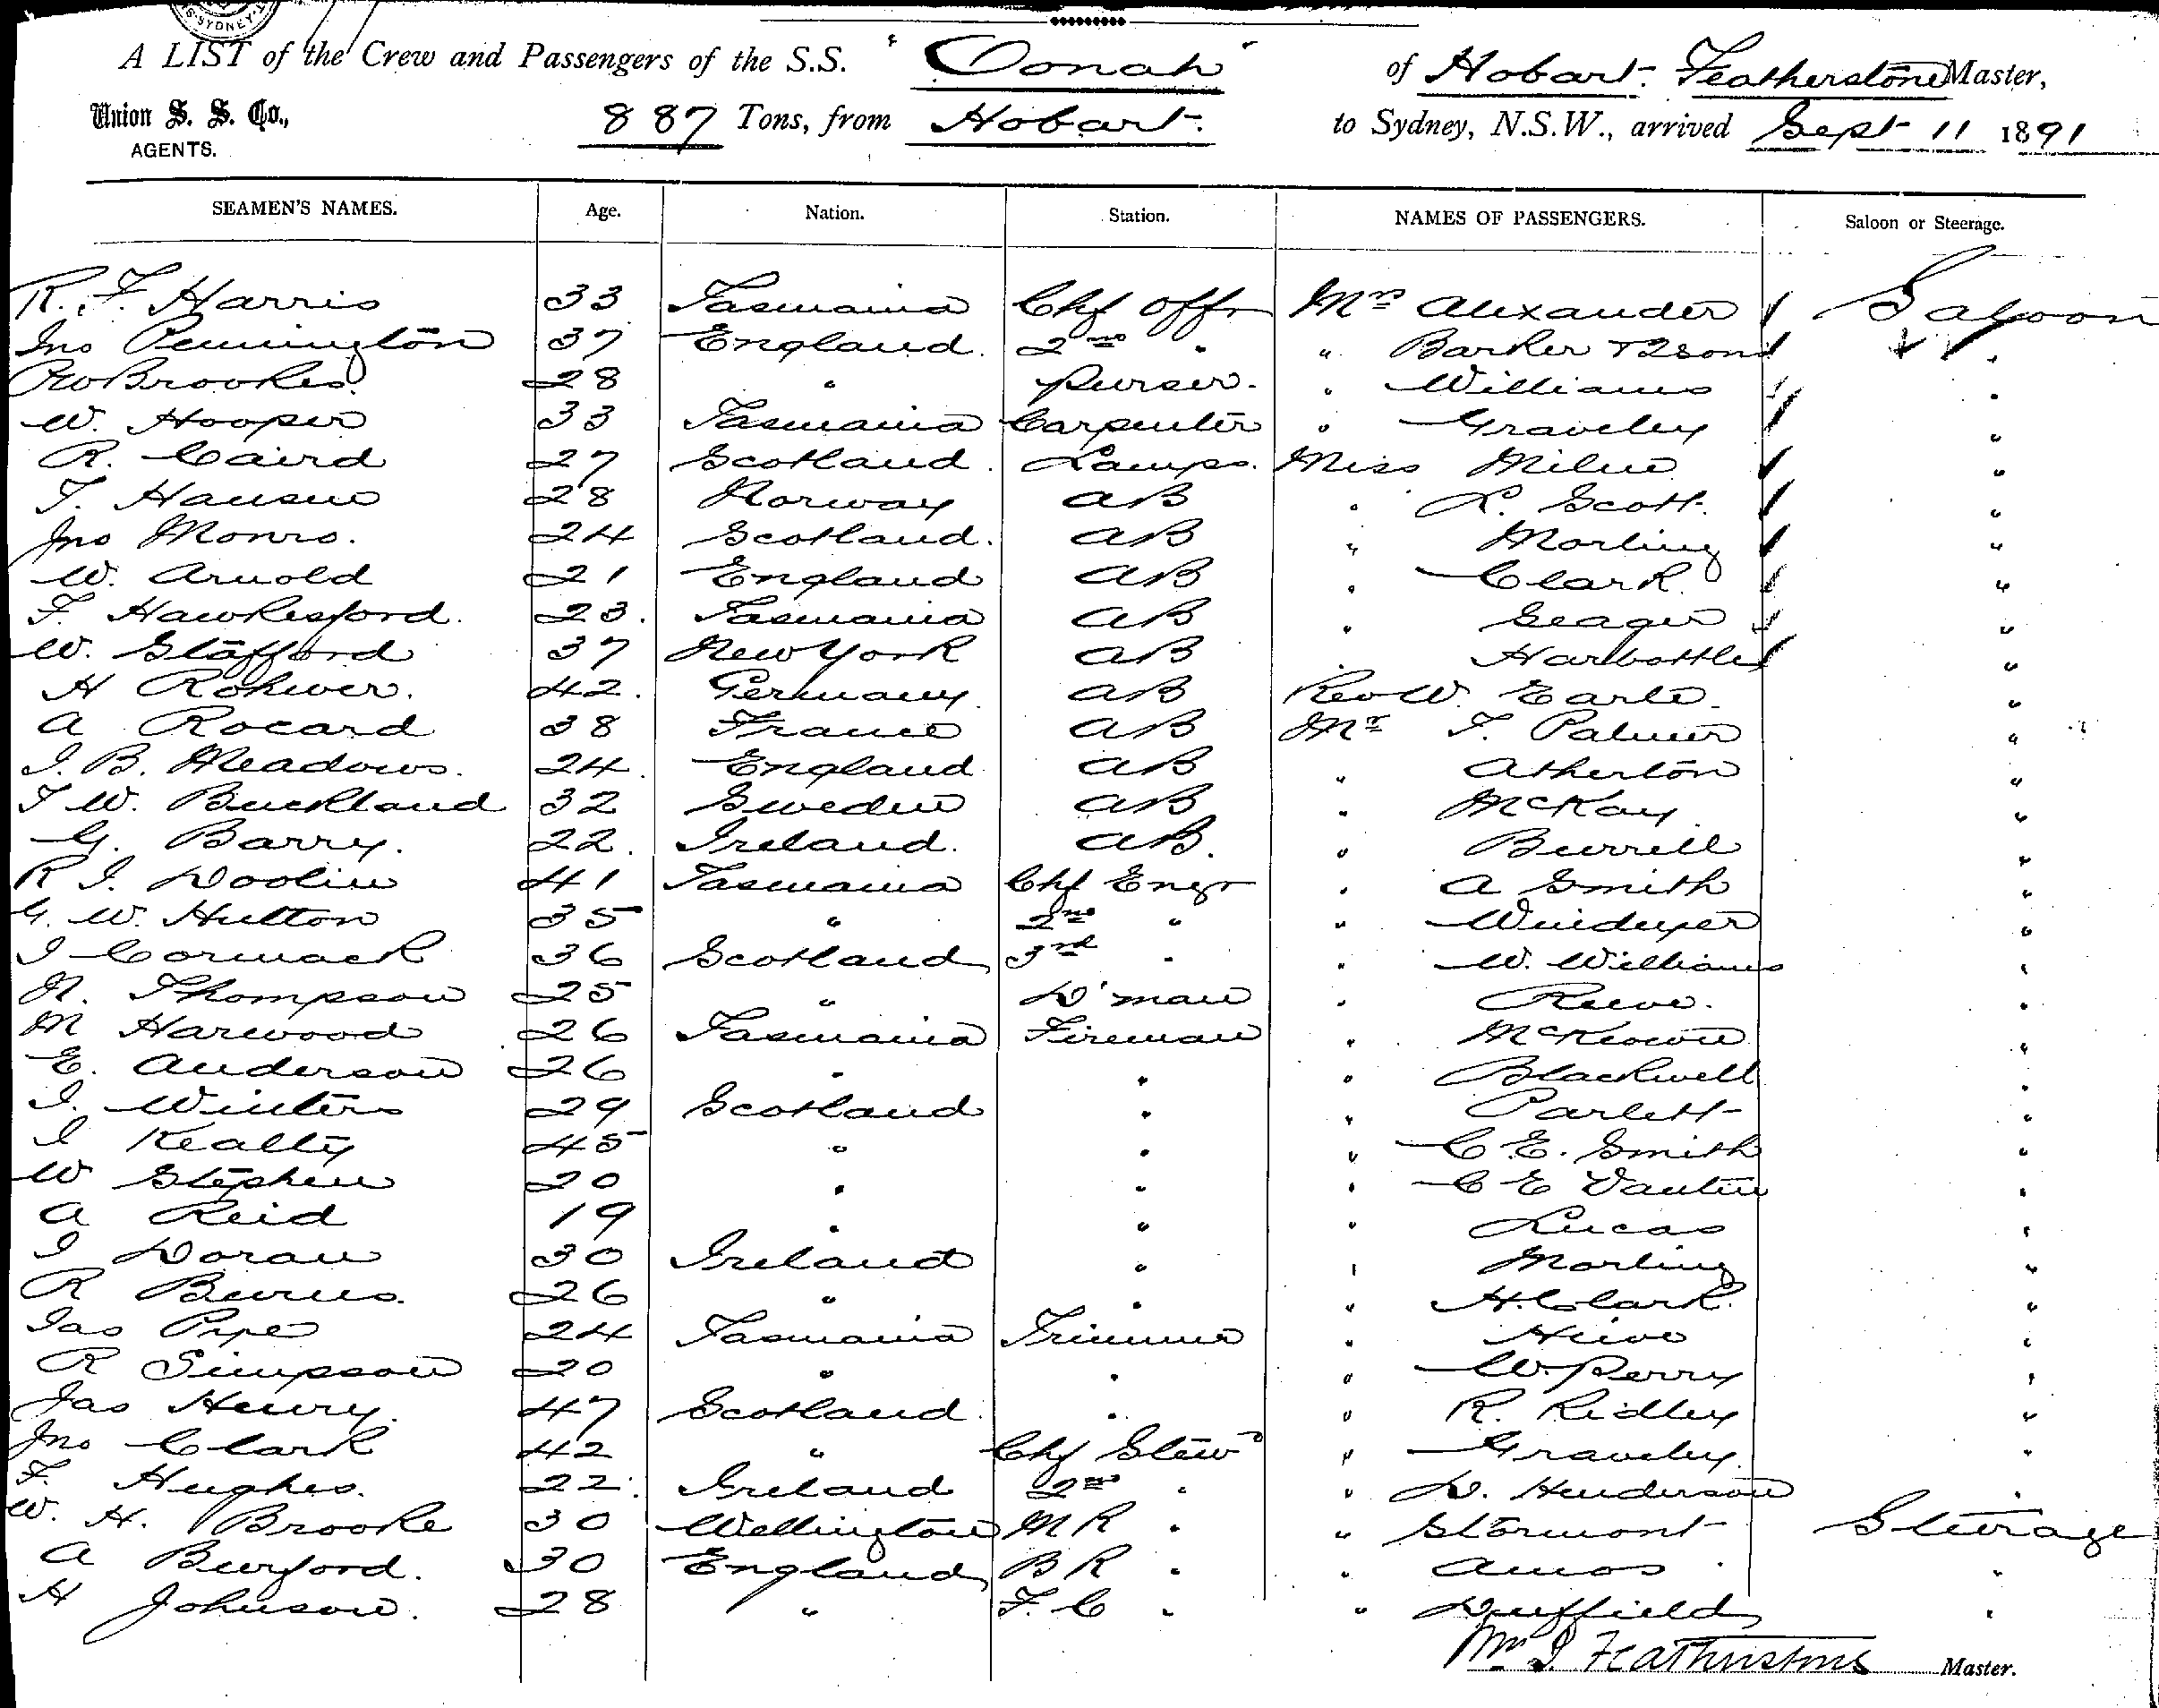 SYDNEY
A LIST of the Crew and Passengers of the S.S. "Oonah" of Hobart. Featherstone Master,
Union S. S. Co., AGENTS.
887 Tons, from Hobart. to Sydney, N.S.W., arrived Sept 11 1891
SEAMEN'S NAMES. Age. Nation. Station. NAMES OF PASSENGERS. Saloon or Steerage.
R. F. Harris 33 Tasmania Chf Offr Mrs Alexander Saloon
Jno Pennington 37 England. 2nd " " Barker & 2 sons "
Brookes 28 " Purser. " Williams "
W. Hooper 33 Tasmania Carpenter " Graveley "
R. Caird 27 Scotland. Lamps. Miss Milne "
T. Hansen 28 Norway AB " L. Scott. "
Jno Monro. 24 Scotland. AB " Morling "
W. Arnold 21 England AB " Clark. "
F. Hawkesford. 23. Tasmania AB " Seager "
W. Stafford 37 New York AB " Harbottle "
H Rohwer. 42. Germany. AB Rev W. Earle. "
A Rocard 38 France AB Mr F. Palmer "
J. B. Meadows. 24. England AB " Atherton "
T W. Buckland 32 Sweden AB " McKay "
G. Barry. 22. Ireland. AB. " Burrell "
R J. Doolin 41 Tasmania Chf Engr " A Smith "
G. W. Hutton 35 " 2nd " " Windeyer "
J Cormack 36 Scotland 3rd " " W. Williams "
N. Thompson 25 " D'man " Reeve. "
M Harwood 26 Tasmania Fireman " McKeown "
E. Anderson 26 " " " Blackwell "
J. Winters 29 Scotland " " Parlett "
J Kealty 45 " " " C E. Smith "
W Stephen 20 " " " C E Vautin "
A Reid 19 " " " Lucas "
J Doran 30 Ireland " " Morling "
R Burns. 26 " " " H. Clark. "
Jas Pipe 24 Tasmania Trimmer " "
R Simpson 20 " " " W. Perry "
Jas Henry. 47 Scotland. " " R. Ridley "
Jno Clark 42 " Chf Stewd " Graveley. "
F. Hughes. 22. Ireland 2nd " " D. Henderson "
W. H. Brooke 30 Wellington M R " " Stormont Steerage
A Burford. 30 England B R " " Amos "
H Johnson. 28 " F. C " " Duffield "
Wm J. Featherstone Master.